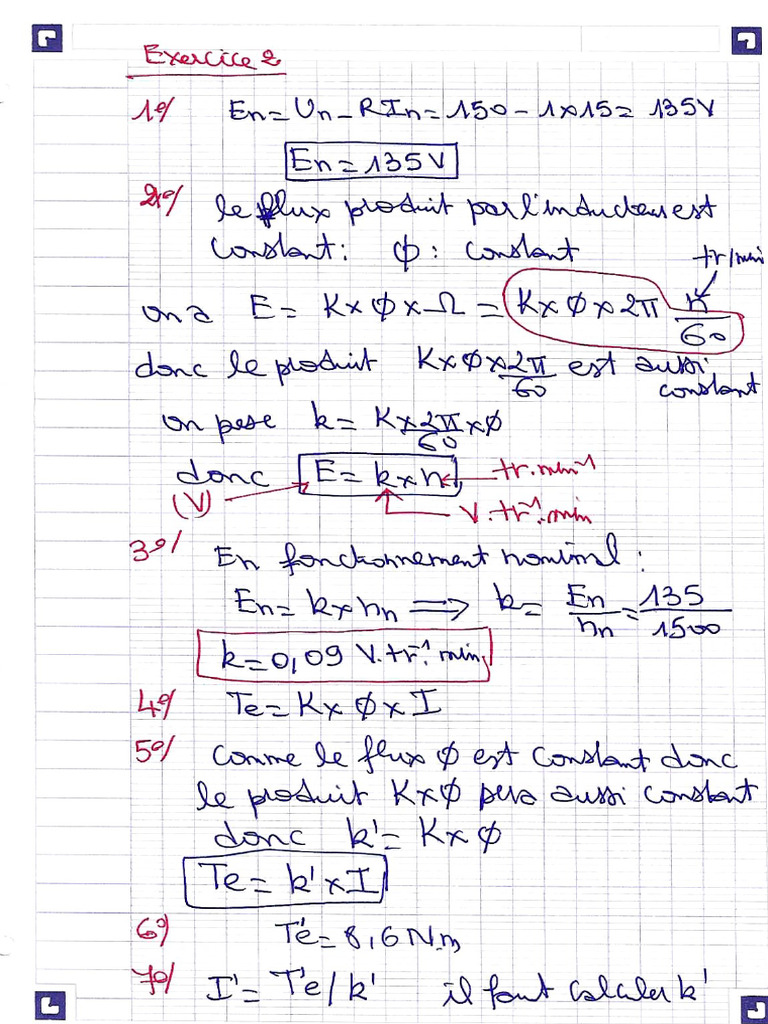 Exercice 2
1°/ En = Un - RIn = 150 - 1x15 = 135V
En = 135V
2°/ le flux produit par l'inducteur est
constant : ϕ : constant
tr/min
on a E = K x ϕ x Ω = K x ϕ x 2π n/60
donc le produit K x ϕ x 2π/60 est aussi
constant
on pose k = K x 2π/60 x ϕ
donc E = k x n tr.min⁻¹
(V) V.tr⁻¹.min
3°/ En fonctionnement nominal :
En = k x nn ⟹ k = En/nn = 135/1500
k = 0,09 V.tr⁻¹.min
4°/ Te = K x ϕ x I
5°/ Comme le flux ϕ est constant donc
le produit K x ϕ sera aussi constant
donc k' = K x ϕ
Te = k' x I
6°/ T'e = 8,6 N.m
7°/ I' = T'e / k' il faut calculer k'